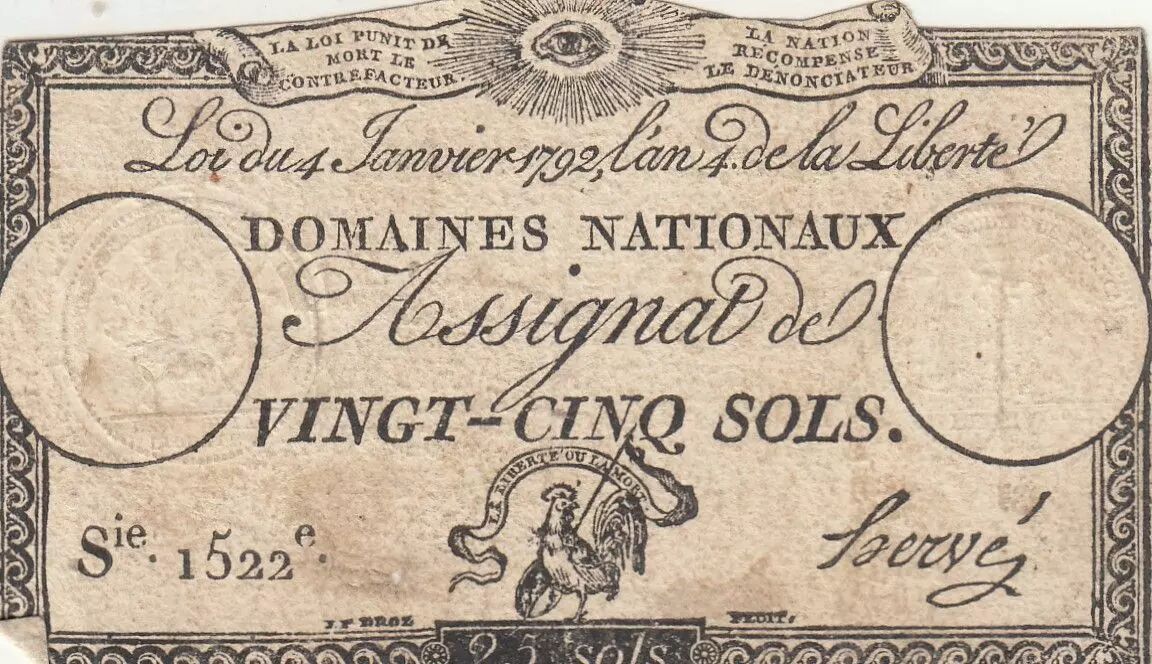 LA LOI PUNIT DE
MORT LE
CONTREFACTEUR.
LA NATION
RECOMPENSE
LE DENONCIATEUR
Loi du 4 Janvier 1792, l'an 4. de la Liberté
DOMAINES NATIONAUX
Assignat de
VINGT-CINQ SOLS.
LA LIBERTÉ OU LA MORT
Sie. 1522e.
hervé
J.P DROZ
FECIT,
25 sols